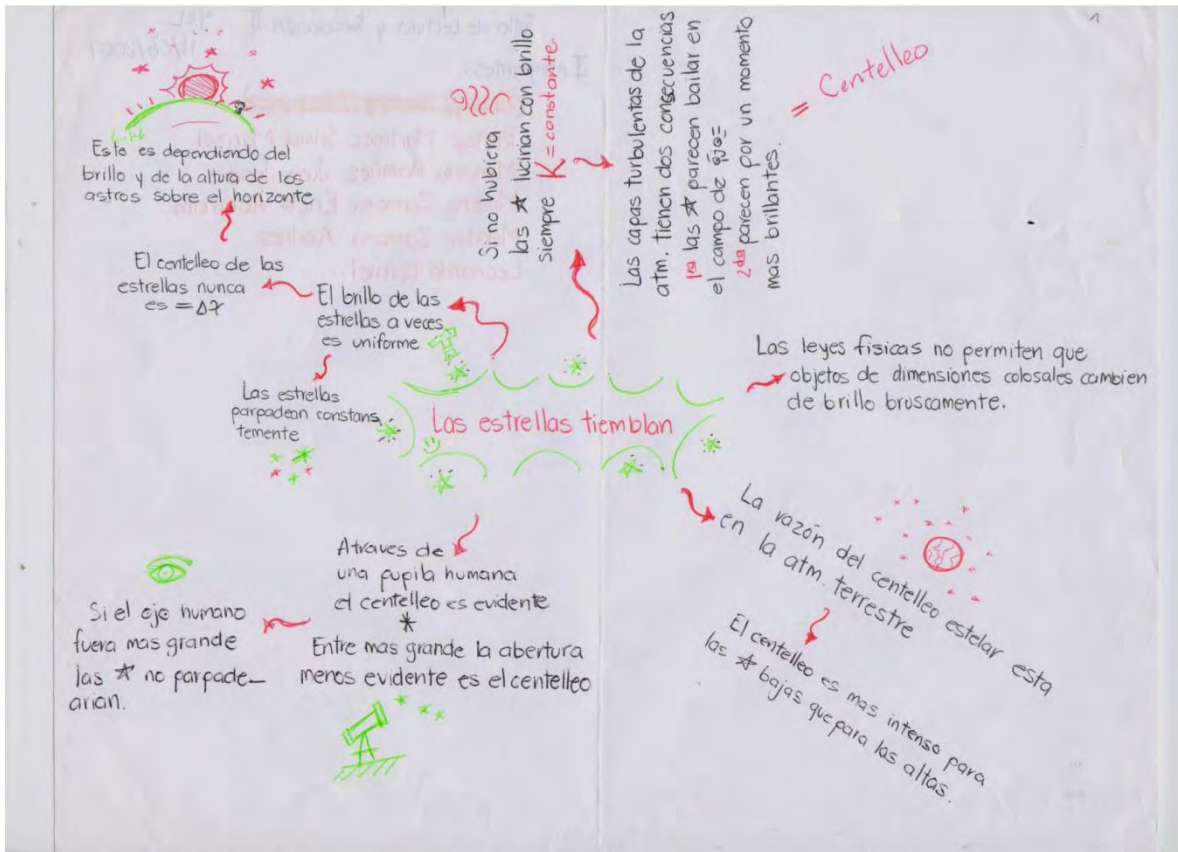 Las estrellas tiemblan
El brillo de las
estrellas a veces
es uniforme
El centelleo de las
estrellas nunca
es = Δx
Esto es dependiendo del
brillo y de la altura de los
astros sobre el horizonte
Las estrellas
parpadean constans
temente
Si no hubiera
las ☆ lucirian con brillo
siempre K = constante.
Las capas turbulentas de la
atm. tienen dos consecuencias
1ra las ☆ parecen bailar en
el campo de
2da parecen por un momento
mas brillantes.
= Centelleo
Las leyes fisicas no permiten que
objetos de dimensiones colosales cambien
de brillo bruscamente.
La razón del centelleo estelar esta
en la atm. terrestre
El centelleo es mas intenso para
las ☆ bajas que para las altas.
Atraves de
una pupila humana
el centelleo es evidente
*
Entre mas grande la abertura
menos evidente es el centelleo
Si el ojo humano
fuera mas grande
las ☆ no parpade-
arian.